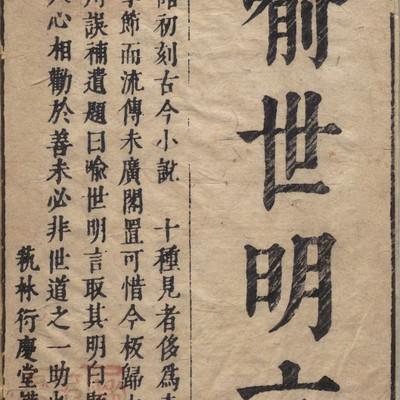 喻世明言
初刻古今小說 十種見者侈爲
節而流傳未廣閣置可惜今板歸
誤補遺題曰喻世明言取其明白顯
人心相勸於善未必非世道之一助也
蓺林衍慶堂